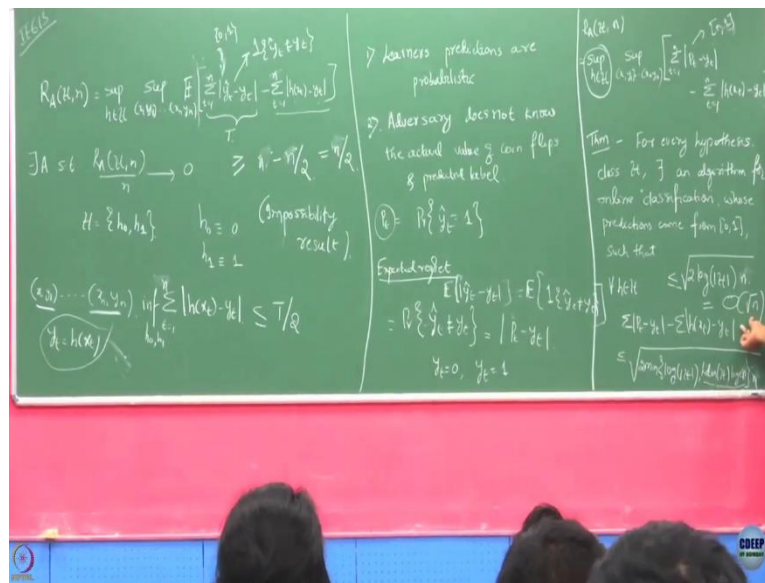 IE613
{0,1} 1{ŷt ≠ yt}
R_A(H,n) = sup_{h∈H} sup_{(x1,y1)...(xn,yn)} E[Σ_{t=1}^n |ŷt - yt| - Σ_{t=1}^n |h(xt) - yt|]
T
∃ A st R_A(H,n)/n → 0 ≥ n - n/2 = n/2
H = {h0, h1} h0 ≡ 0 (Impossibility
h1 ≡ 1 result)
(x1,y1) ..... (xn,yn) inf_{h0,h1} Σ_{t=1}^n |h(xt) - yt| ≤ T/2
yt = h(xt)
1) Learners predictions are
probabilistic
2) Adversary does not know
the actual value of coin flips
of predicted label
Pt = Pr{ŷt = 1}
Expected regret
E[|ŷt - yt|] = E[1{ŷt ≠ yt}]
= Pr{ŷt ≠ yt} = |Pt - yt|
yt=0, yt=1
R_A(H,n) [0,1]
= sup_{h∈H} sup_{(x1,y1)...(xn,yn)} [Σ_{t=1}^n |Pt - yt|
- Σ_{t=1}^n |h(xt) - yt|]
Thm - For every hypothesis
class H, ∃ an algorithm for
online classification, whose
predictions come from [0,1],
such that
∀ h∈H ≤ √(2 log(|H|) n)
= O(√n)
Σ|Pt - yt| - Σ|h(xt) - yt|
≤ √(2 min{log(|H|), Ldim(H) log(n)} n)
NPTEL
CDEEP
IIT BOMBAY